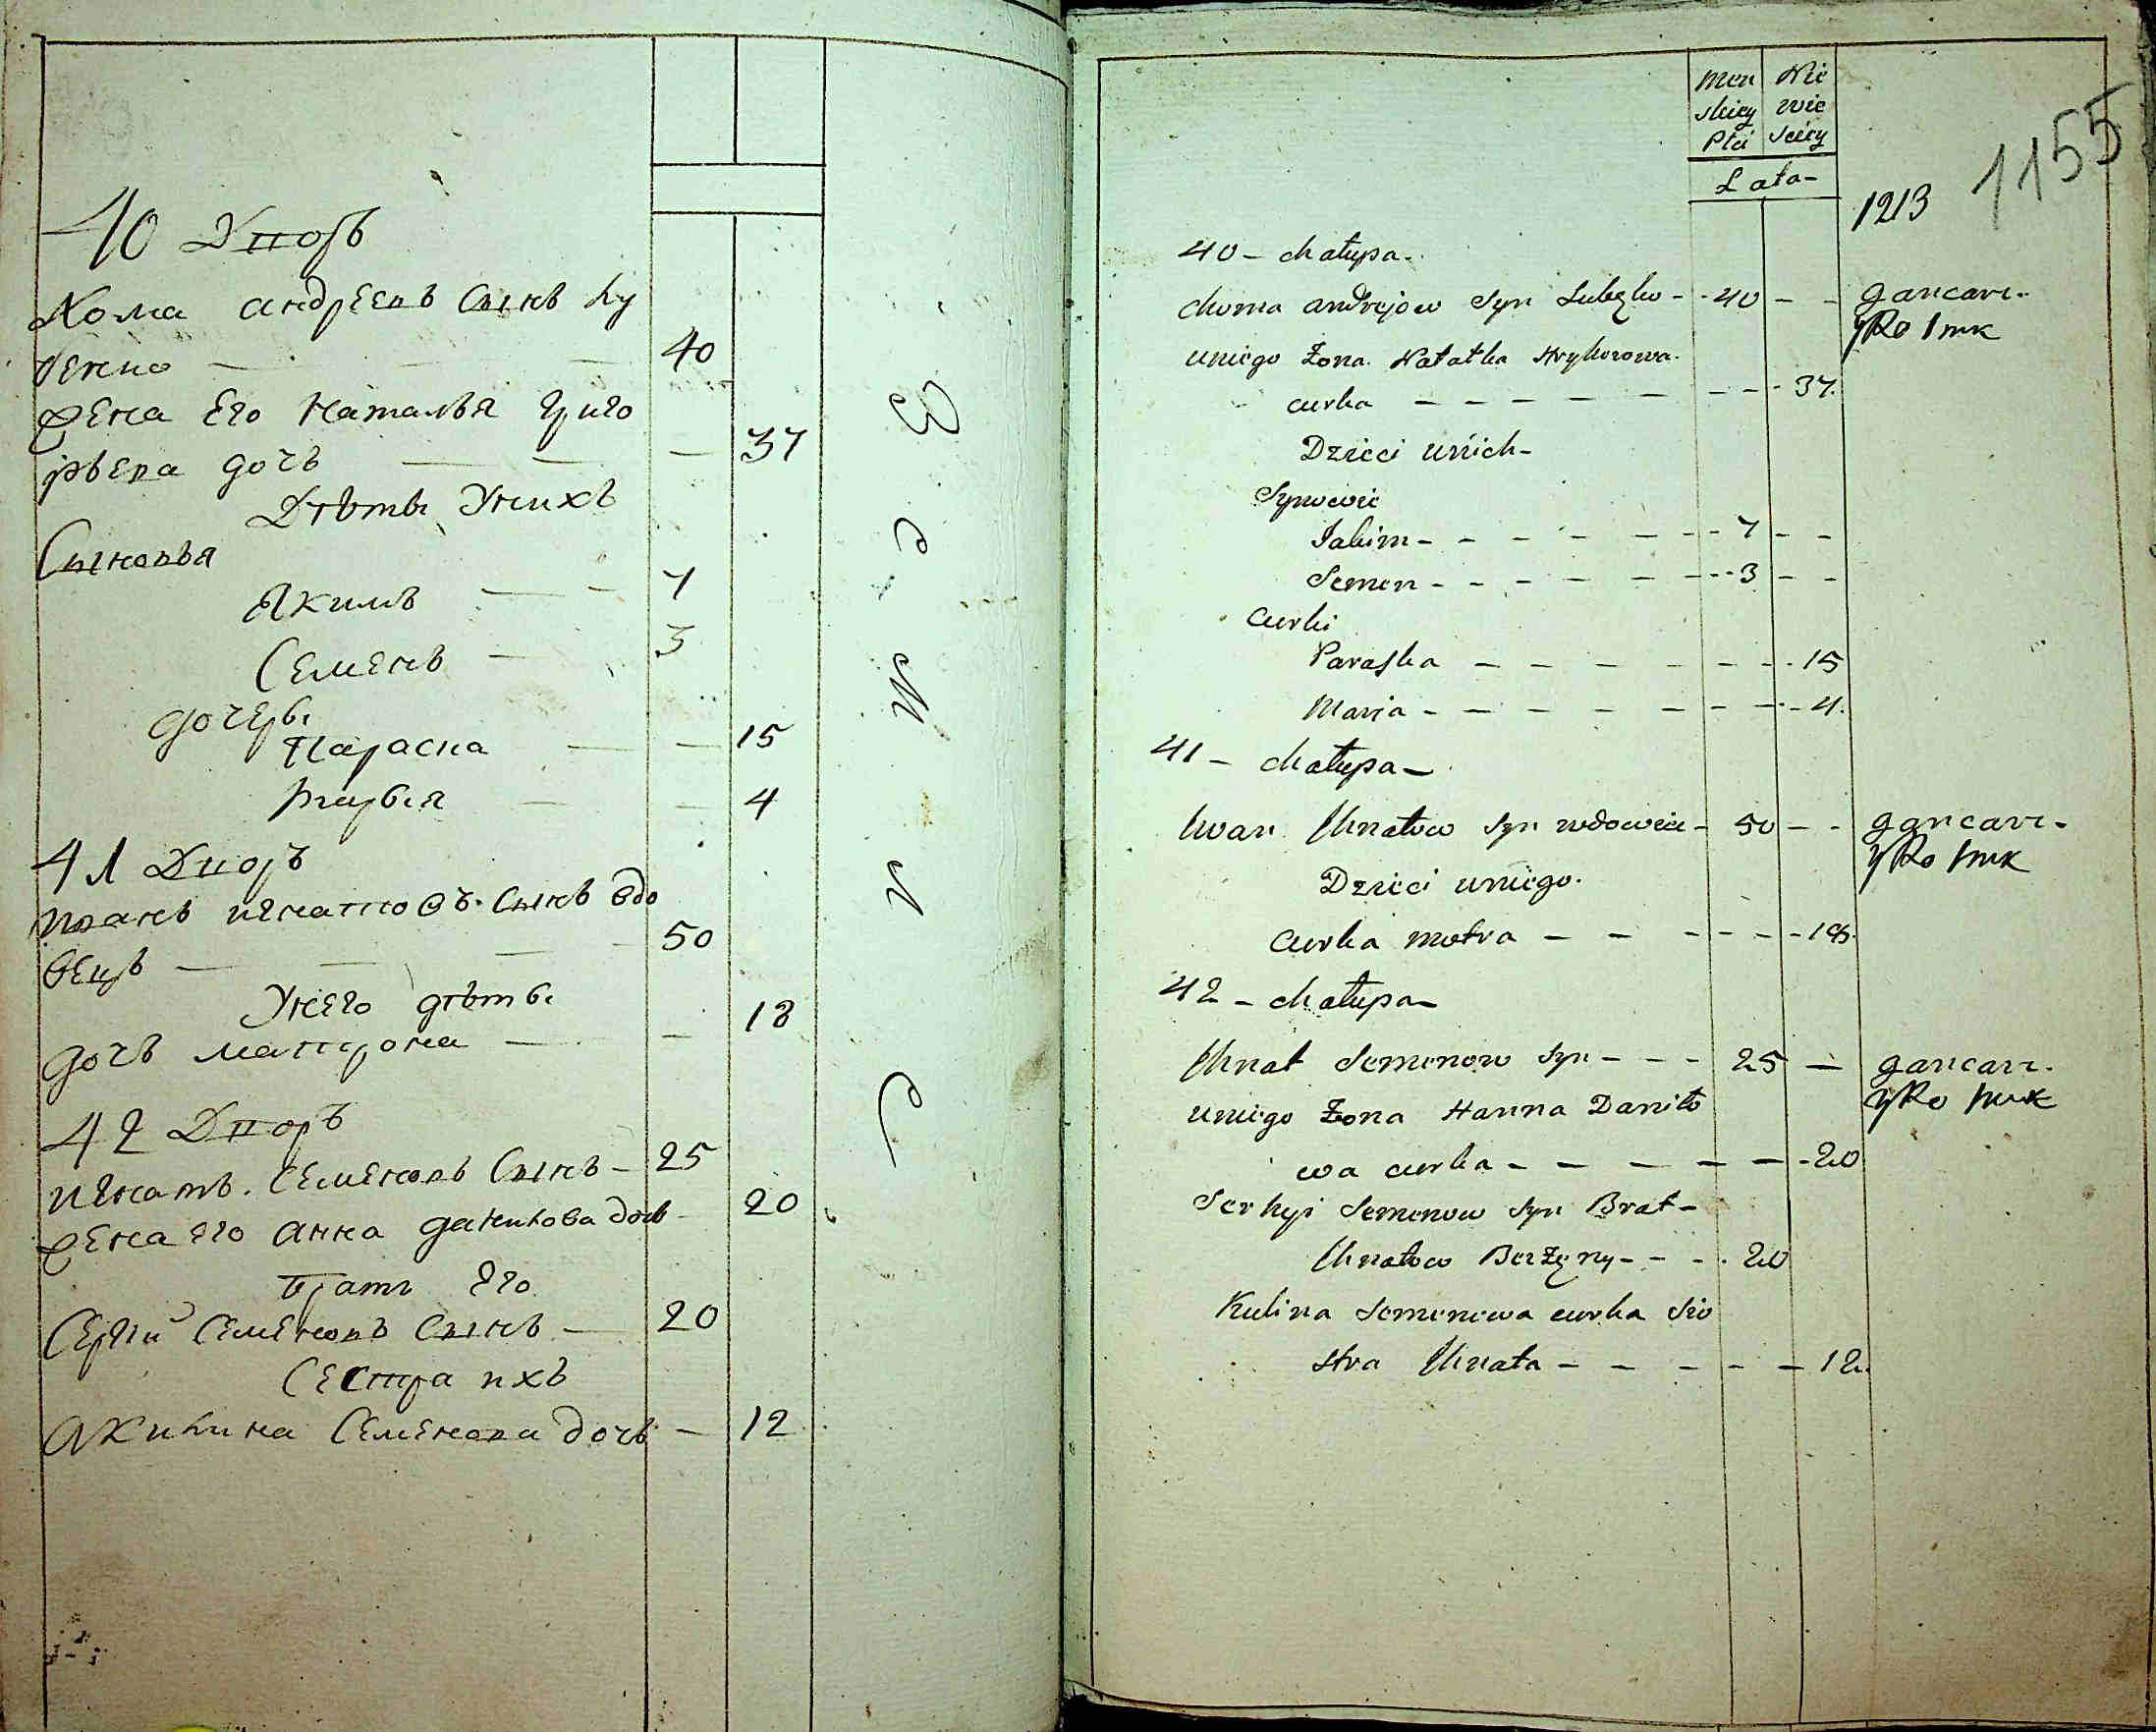 40 Дворъ
Хома андреевъ Сынъ Лу
бенко — 40
жена Его Наталья Григо
рьева дочь — 37
Дѣты Унихъ
Сыновья
Якимъ — 7
Семенъ — 3
дочеры
Параска — 15
Марья — 4
41 Дворъ
Иванъ игнатовъ Сынъ вдо
вецъ — 50
Унего дѣты
дочь матрона — 18
42 Дворъ
игнатъ Семеновъ Сынъ — 25
жена его анна данилова дочь 20
братъ Его
Сергій Семеновъ Сынъ — 20
Сестра ихъ
акилина Семенова дочь — 12
Men Nie
skiey wie
Płci sciey
Lata
1213
1155
40 – chałupa
choma andrejow Syn — 40 — gancarz
uniego Żona Natałka Hryhorowa
curka — 37
Dzieci unich
Synowie
Jakim — 7
Semen — 3
Curki
Paraska — 15
Marja — 4
41 – chałupa
Iwan Ihnatow Syn wdowiec — 50 — gancarz
Dzieci uniego
Curka motra — 18
42 – chałupa
Ihnat Semenow Syn — 25 — gancarz
uniego Żona Hanna Daniło
wa curka — 20
Serhyi Semenow Syn Brat
Ihnatow Bezżęny — 20
Kulina Semenowa curka Sio
stra Ihnata — 12